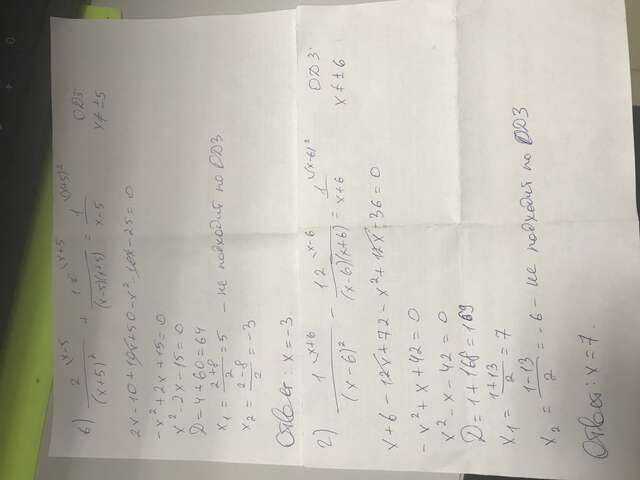 б) 2 \x-5 / (x+5)² + 10 \x+5 / (x-5)(x+5) = 1 \(x+5)² / x-5 ОДЗ:
x ≠ ±5
2x-10+10x+50-x²-10x-25=0
-x²+2x+15=0
x²-2x-15=0
D=4+60=64
x₁ = 2+8 / 2 = 5 - не подходит по ОДЗ.
x₂ = 2-8 / 2 = -3
Ответ: x=-3
2) 1 \x+6 / (x-6)² - 12 \x-6 / (x-6)(x+6) = 1 \(x-6)² / x+6 ОДЗ:
x ≠ ±6
x+6-12x+72-x²+12x-36=0
-x²+x+42=0
x²-x-42=0
D=1+168=169
x₁ = 1+13 / 2 = 7
x₂ = 1-13 / 2 = -6 - не подходит по ОДЗ
Ответ: x=7.